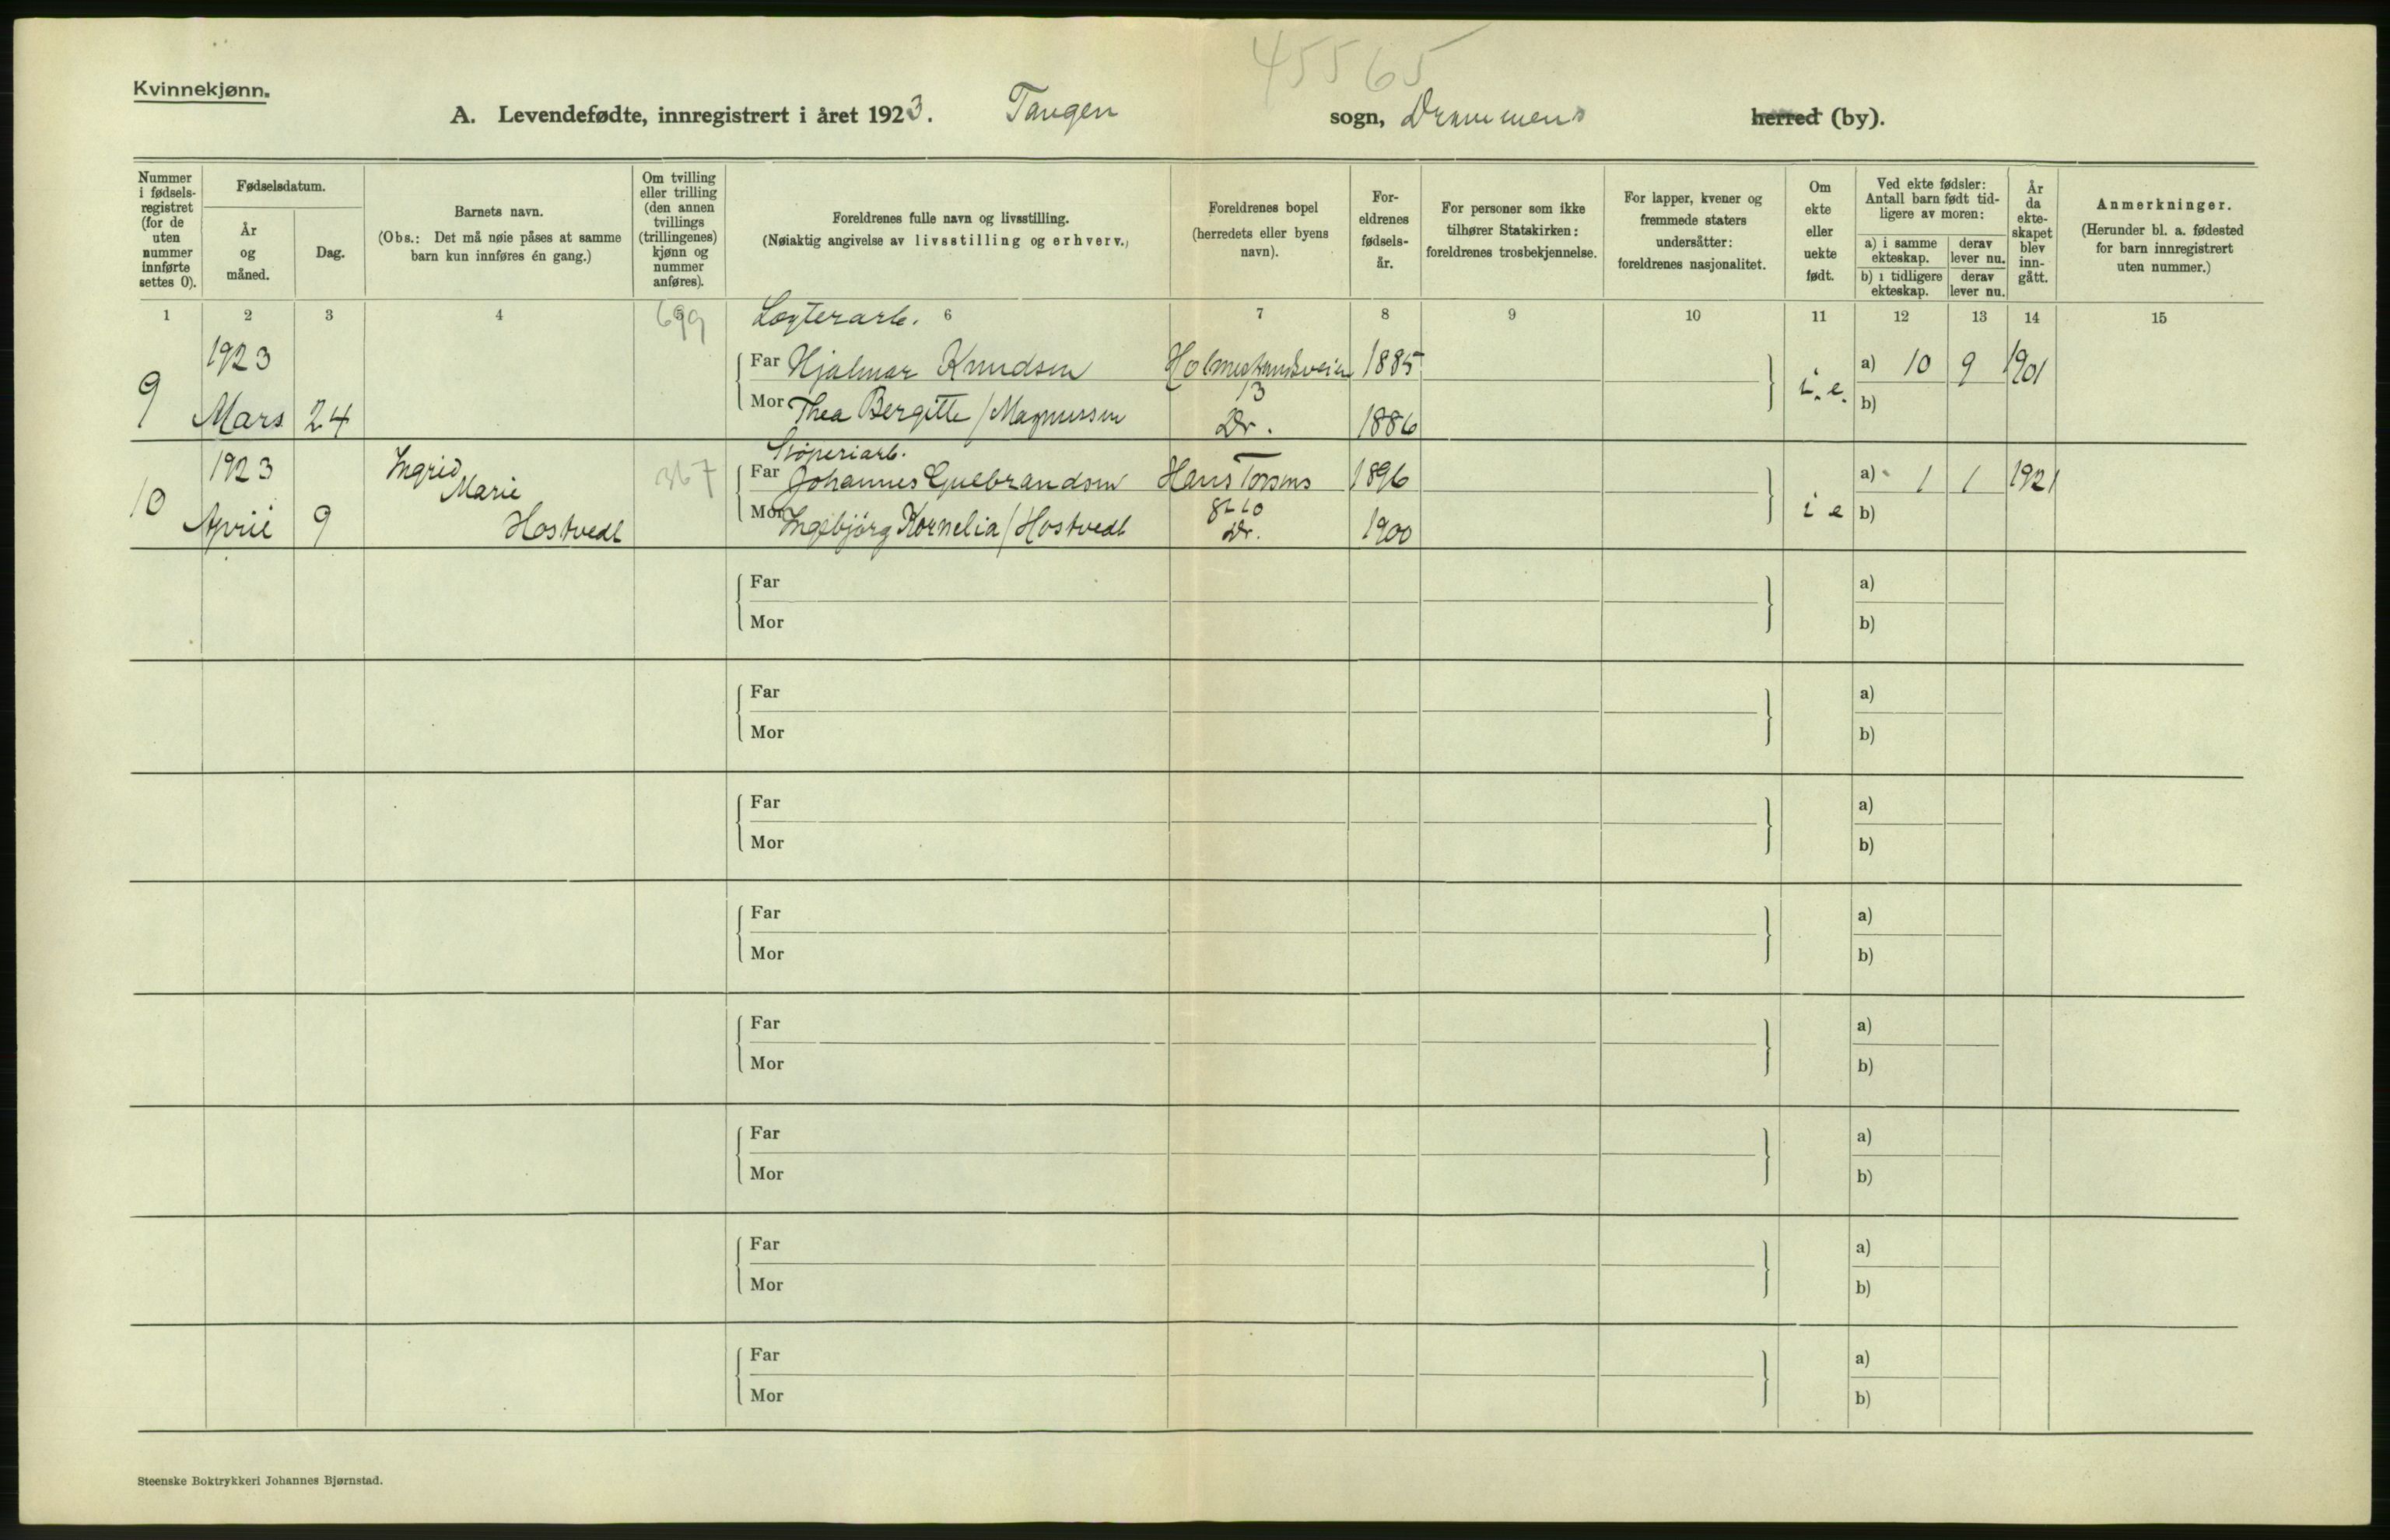 45565
Kvinnekjønn.
A. Levendefødte, innregistrert i året 1923. Tangen sogn, Drammens herred (by).
Nummer i fødsels-registret (for de uten nummer innførte settes 0).
Fødselsdatum.
År og måned.
Dag.
Barnets navn.
(Obs.: Det må nøie påses at samme barn kun innføres én gang.)
Om tvilling eller trilling (den annen tvillings (trillingenes) kjønn og nummer anføres).
Foreldrenes fulle navn og livsstilling.
(Nøiaktig angivelse av livsstilling og erhverv.)
Foreldrenes bopel (herredets eller byens navn).
For-eldrenes fødsels-år.
For personer som ikke tilhører Statskirken: foreldrenes trosbekjennelse.
For lapper, kvener og fremmede staters undersåtter: foreldrenes nasjonalitet.
Om ekte eller uekte født.
Ved ekte fødsler: Antall barn født tid-ligere av moren:
a) i samme ekteskap.
derav lever nu.
b) i tidligere ekteskap.
derav lever nu.
År da ekte-skapet blev inn-gått.
Anmerkninger.
(Herunder bl. a. fødested for barn innregistrert uten nummer.)
1 2 3 4 5 6 7 8 9 10 11 12 13 14 15
699
9 1923 Mars 24
Far Hjalmar Knudsen Holmestrandsveien 1885
13
Mor Thea Bergitte / Magnussen Dr. 1886
i. e. a) 10 9 1901
b)
10 1923 April 9
Ingrid Marie Hostvedt
367
Støperiarb.
Far Johannes Gulbrandsen Hans 1896
Mor Ingebjørg Kornelia / Hostvedt Dr. 1900
i e a) 1 1 1921
b)
Far a)
Mor b)
Far a)
Mor b)
Far a)
Mor b)
Far a)
Mor b)
Far a)
Mor b)
Far a)
Mor b)
Far a)
Mor b)
Far a)
Mor b)
Steenske Boktrykkeri Johannes Bjørnstad.